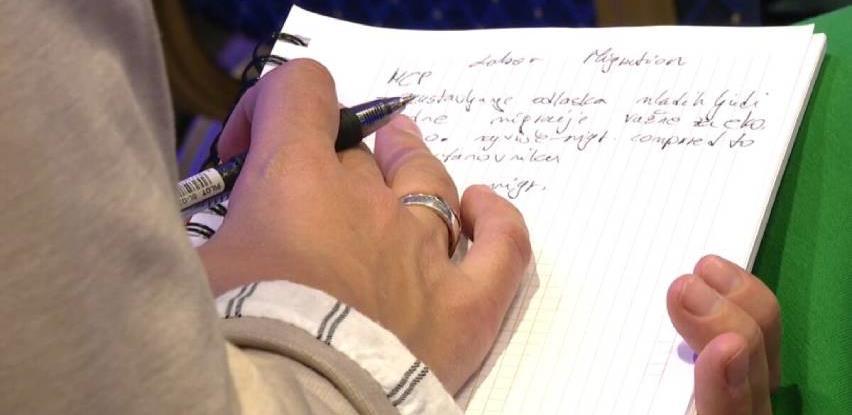 Labor Migration
MCP
zaustavljanje odlaska mladih ljudi
dne migracije važno za eko.
o. najviše migr. compared to
stanovniku
migr.
PILOT